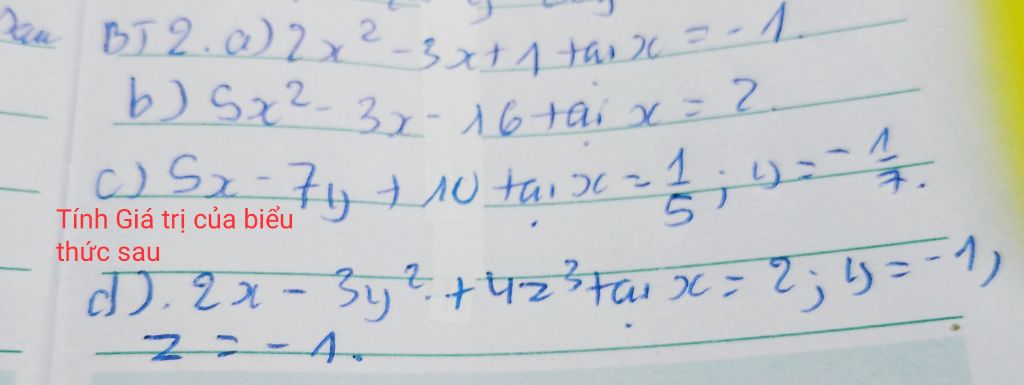 sau
BT2. a) 2x² - 3x + 1 tại x = - 1.
b) 5x² - 3x - 16 tại x = 2.
c) 5x - 7y + 10 tại x = 1/5 ; y = - 1/7.
Tính Giá trị của biểu
thức sau
d). 2x - 3y² + 4z³ tại x = 2 ; y = - 1,
z = - 1.